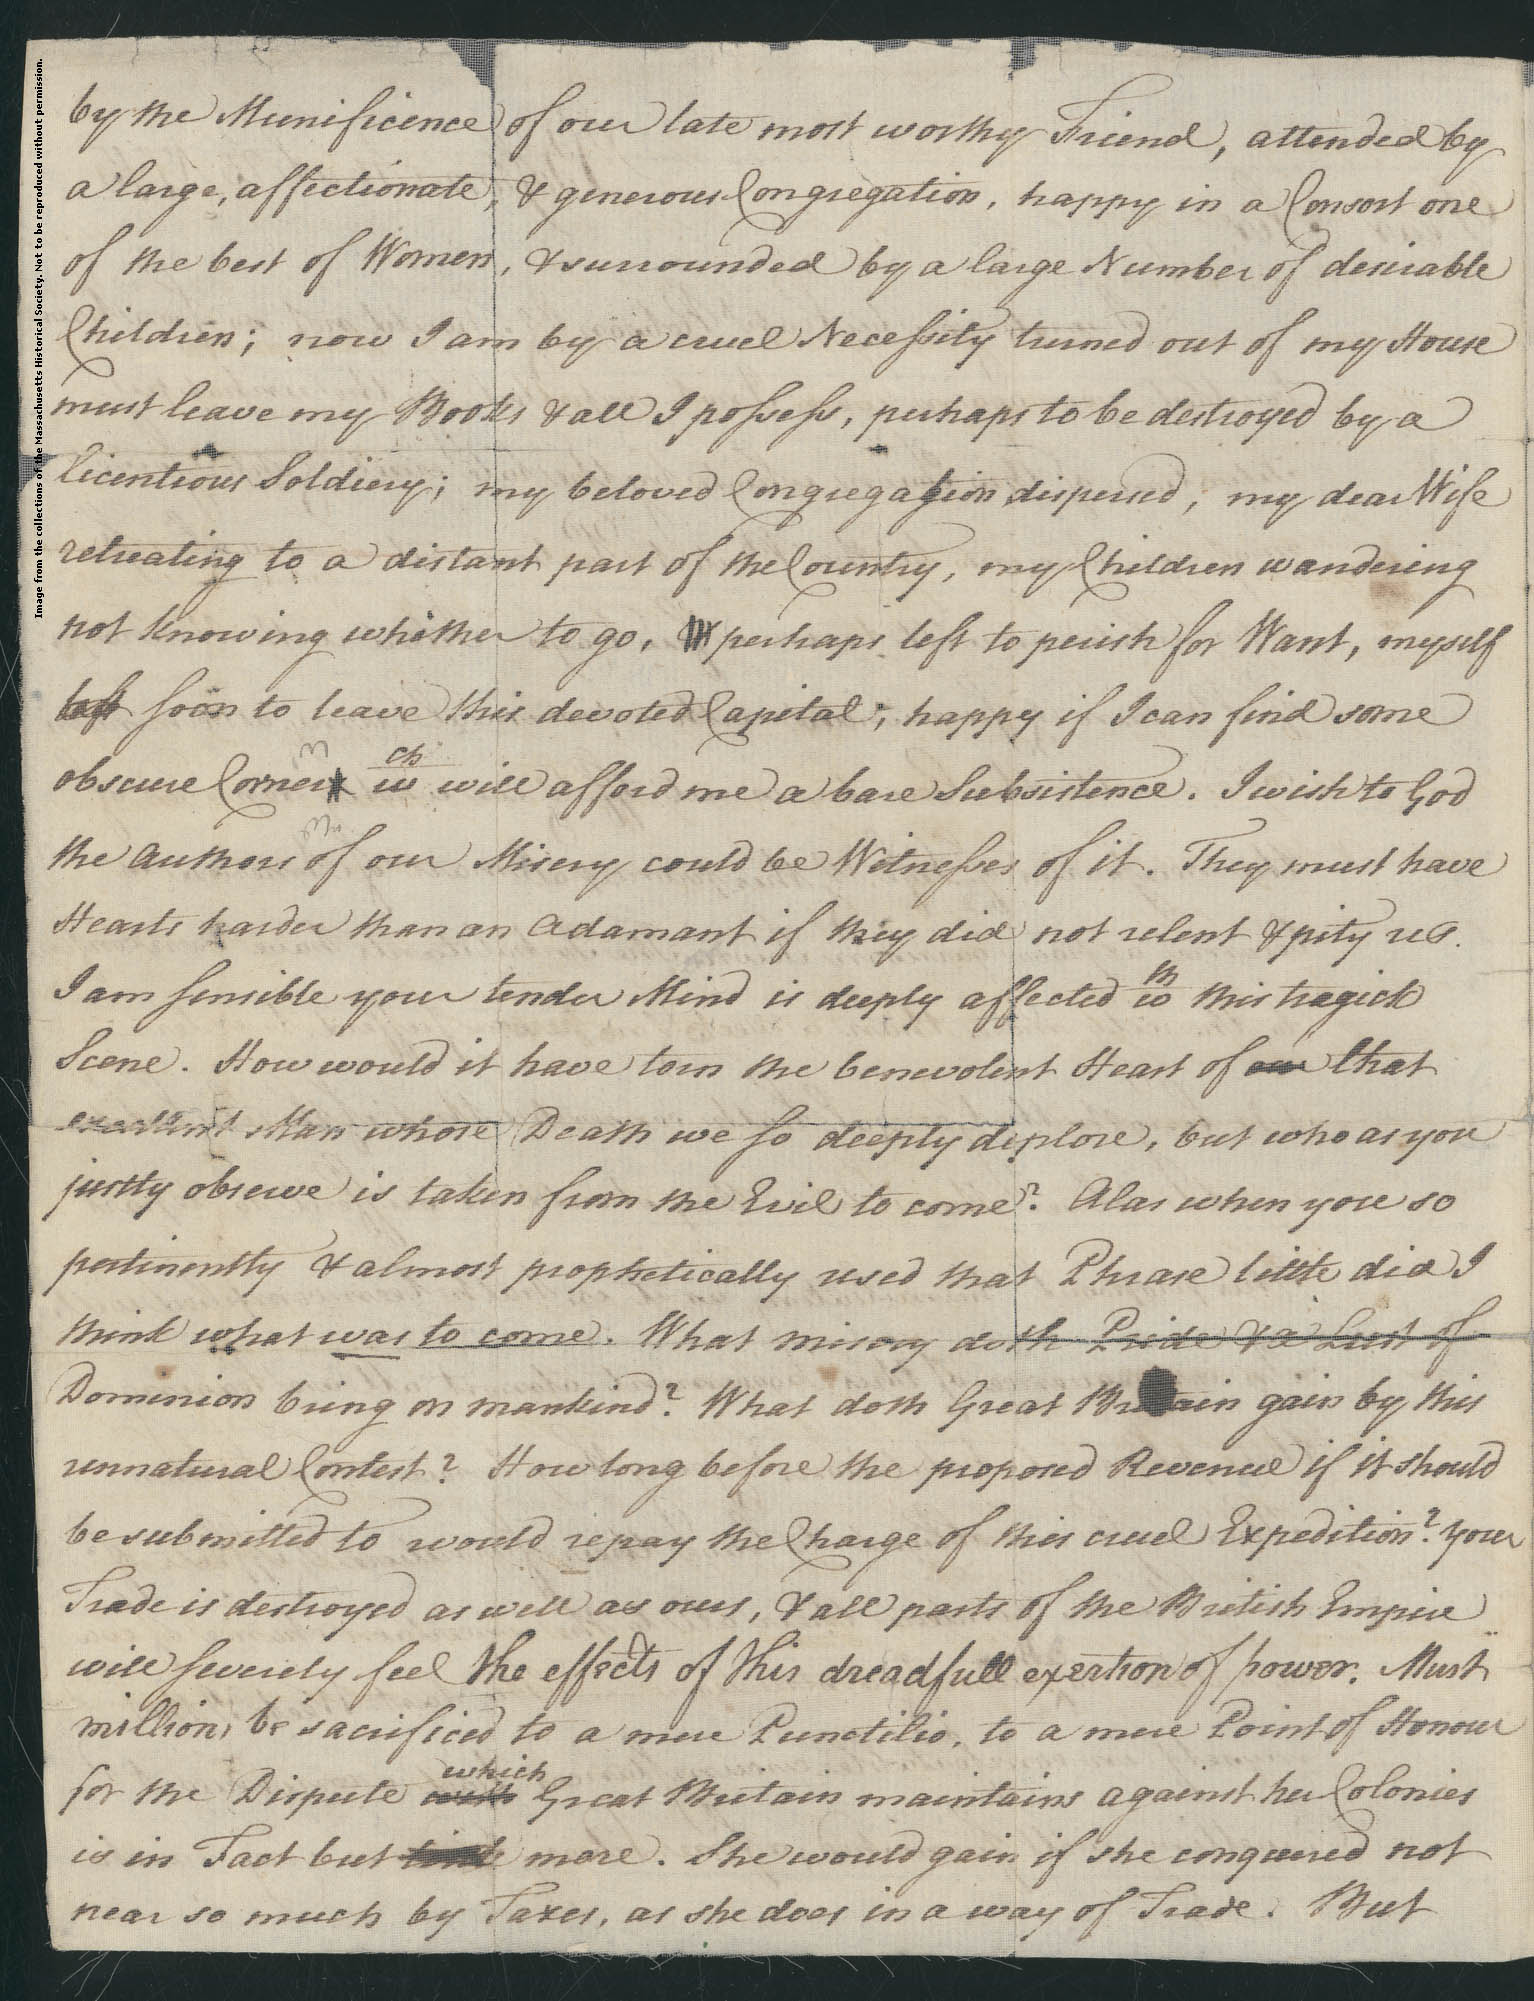 Image from the collections of the Massachusetts Historical Society. Not to be reproduced without permission.
by the Munificence of our late most worthy Friend, attended by
a large, affectionate, & generous Congregation, happy in a Consort one
of the best of Women, & surrounded by a large Number of desirable
Children; now I am by a cruel Necessity turned out of my House
must leave my Books & all I possess, perhaps to be destroyed by a
licentious Soldiery; my beloved Congregation dispersed, my dear Wife
retreating to a distant part of the Country, my Children wandering
not knowing whither to go, perhaps left to perish for Want, myself
left soon to leave this devoted Capital, happy if I can find some
obscure Corner wch will afford me a bare Subsistence. I wish to God
the authors of our Misery could be Witnesses of it. They must have
Hearts harder than an Adamant if they did not relent & pity us.
I am sensible your tender Mind is deeply affected wth this tragick
Scene. How would it have torn the benevolent Heart of our that
excellent Man whose Death we so deeply deplore, but who as you
justly observe is taken from the Evil to come? Alas when you so
pertinently & almost prophetically used that Phrase little did I
think what was to come. What misery doth Pride & a Lust of
Dominion bring on mankind? What doth Great Britain gain by this
unnatural Contest? How long before the proposed Revenue if it should
be submitted to would repay the Charge of this cruel Expedition? your
Trade is destroyed as well as ours, & all parts of the British Empire
will severely feel the effects of this dreadfull exertion of power. Must
millions be sacrificed to a mere Punctilio, to a mere Point of Honour
for the Dispute with which Great Britain maintains against her Colonies
is in Fact but little more. She would gain if she conquered not
near so much by Taxes, as she does in a way of Trade. But